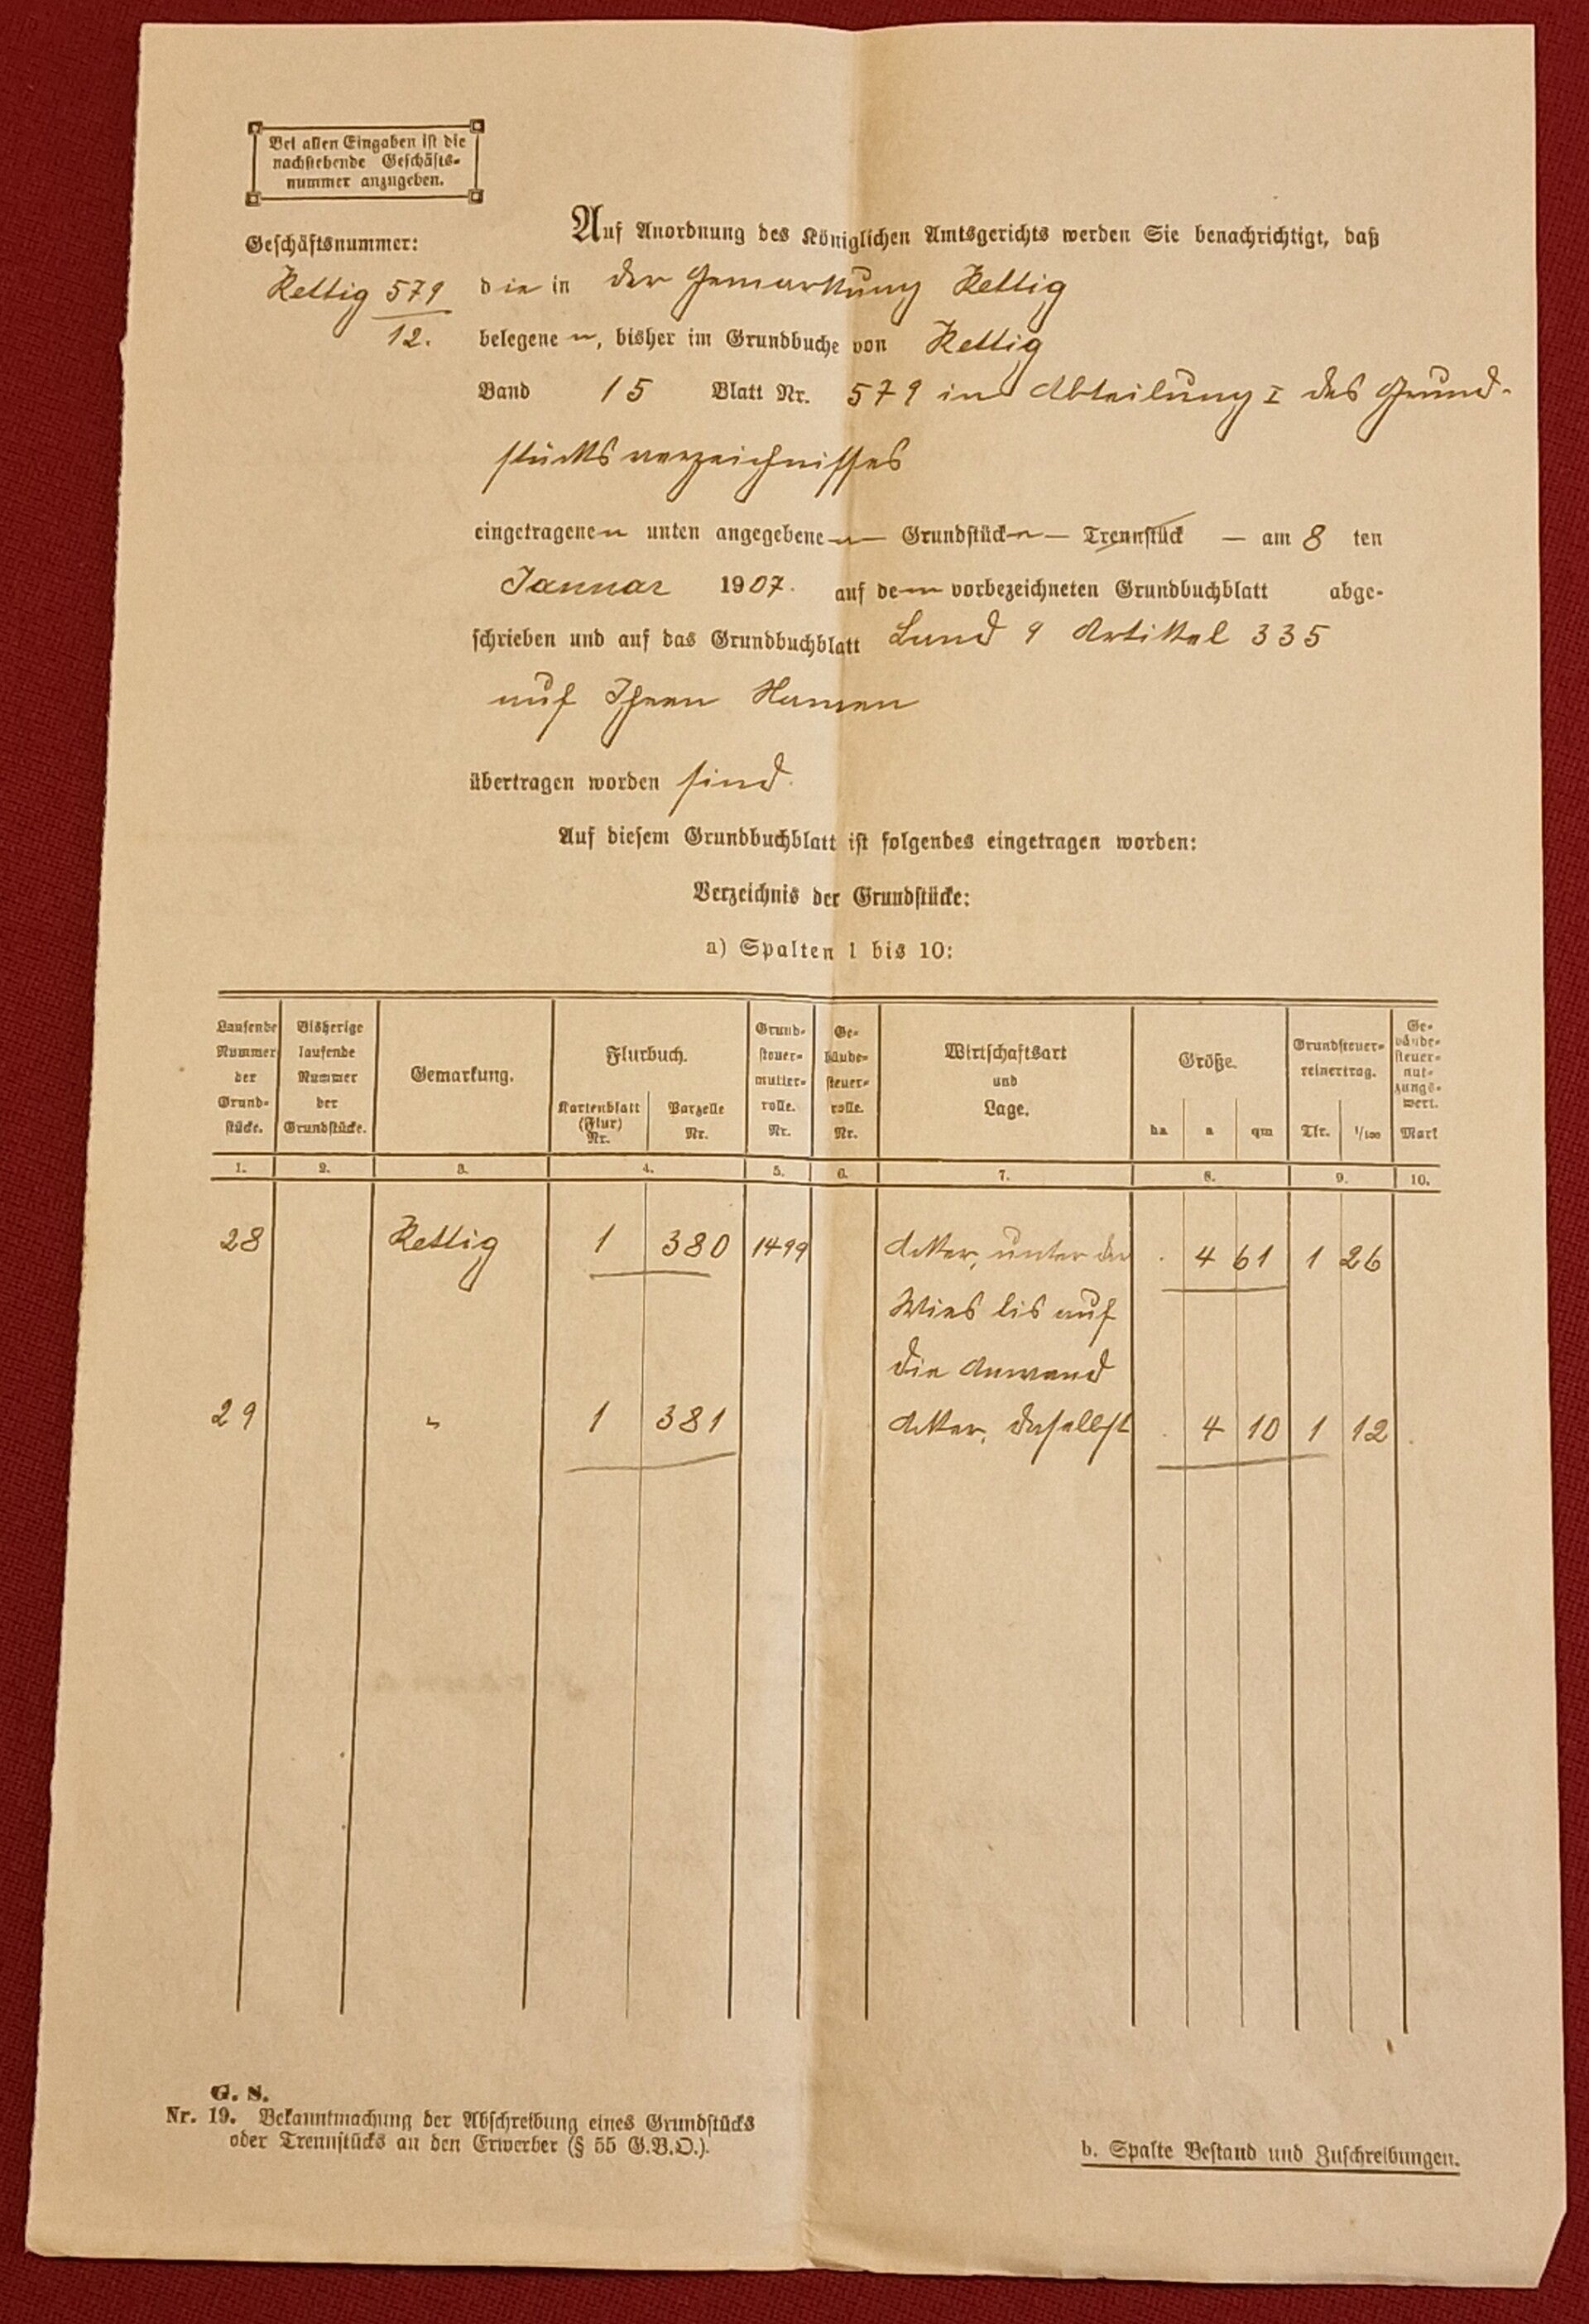 Bei allen Eingaben ist die
nachstehende Geschäfts-
nummer anzugeben.
Geschäftsnummer:
Kettig 579
12.
Auf Anordnung des Königlichen Amtsgerichts werden Sie benachrichtigt, daß
die in der Gemarkung Kettig
belegenen, bisher im Grundbuche von Kettig
Band 15 Blatt Nr. 579 in Abteilung I des Grund-
stücksverzeichnisses
eingetragenen unten angegebenen — Grundstücke — Trennstück — am 8 ten
Januar 1907. auf dem vorbezeichneten Grundbuchblatt abge-
schrieben und auf das Grundbuchblatt Band 9 Artikel 335
auf Ihren Namen
übertragen worden sind.
Auf diesem Grundbuchblatt ist folgendes eingetragen worden:
Verzeichnis der Grundstücke:
a) Spalten 1 bis 10:
Laufende Nummer der Grund-stücke.
Bisherige laufende Nummer der Grundstücke.
Gemarkung.
Flurbuch.
Kartenblatt (Flur) Nr.
Parzelle Nr.
Grund-steuer-mutter-rolle. Nr.
Ge-bäude-steuer-rolle. Nr.
Wirtschaftsart und Lage.
Größe.
ha a qm
Grundsteuer-reinertrag.
Tlr. 1/100
Ge-bäude-steuer-nut-zungs-wert. Mark
1. 2. 3. 4. 5. 6. 7. 8. 9. 10.
28 Kettig 1 380 1499 Acker, unter der . 4 61 1 26
Wies bis auf
die Anwand
29 " 1 381 Acker, daselbst . 4 10 1 12
G. S.
Nr. 19. Bekanntmachung der Abschreibung eines Grundstücks
oder Trennstücks an den Erwerber (§ 55 G.B.O.).
b. Spalte Bestand und Zuschreibungen.